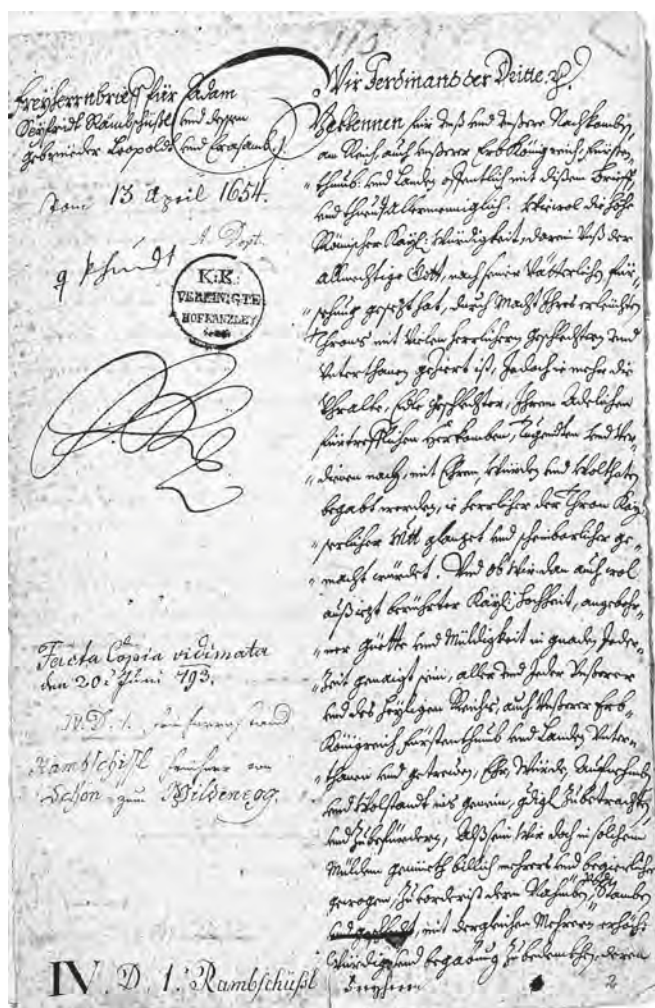 113
Freyherrnbrieff für Adam
Seyfridt Rambschüßl und deßen
gebrieder Leopoldt und Erasamb.
Vom 13 April 1654.
K: K:
VEREINIGTE
HOFKANZLEY
Facta Copia vidimata
den 20. Juni 793.
IV. D. 1. Freyherrnstand
Rambschißl Freyherr von
Schön zum Wildenegg.
IV. D. 1. Rambschüßl
Wir Ferdinand der Dritte
Bekennen für Unß und Unßere Nachkomben
am Reich, auch Unßerer Erb Königreich, Fürsten-
thumb und Landen offentlich mit dißem Brieff,
und thuen Allermenniglich: Wiewol die Höhe
Römischer Kayl: Würdigkeit, darein Unß der
allmechtige Gott, nach seiner Vätterlichen Für-
sehung gesezt hat, durch Macht Ihres erleuchten
Throns mit Vilen herrlichen Geschlechtern und
Unterthanen geziert ist, Jedoch ie mehr die
Uhralte, Edle Geschlechter, Ihrem Adelichen
fürtrefflichen Herkomben, Tugendten und Ver-
dienen nach, mit Ehren, Würden und Wolthaten
begabt werden, ie herrlicher der Thron Kay-
serlicher Mtt glanzet und scheinbarlicher ge-
macht würdet. Und ob Wir dan auch wol
auß iezt berührter Kayl: Hochheit, angebohr-
ner Güette und Müldigkeit in gnaden Jeder-
Zeit genaigt sein, aller und Jeder Unßerer
und des Heyligen Reichs, auch Unßerer Erb-
Königreich, Fürstenthumb und Landen Unter-
thanen und getreuen, Ehr, Würde, Aufnehmben
und Wolstandt ins gemein, gdigl: Zubetrachten,
und Zubefürdern, Alß sein Wir doch in solchem
Mülden gemüeth billich mehrers und begierlicher
gewogen, Zuvorderist deren Nahmben, Stamben
mit dergleichen Mehrern erhöhe
Würdig und begabung Zubedenkhen, deren
2